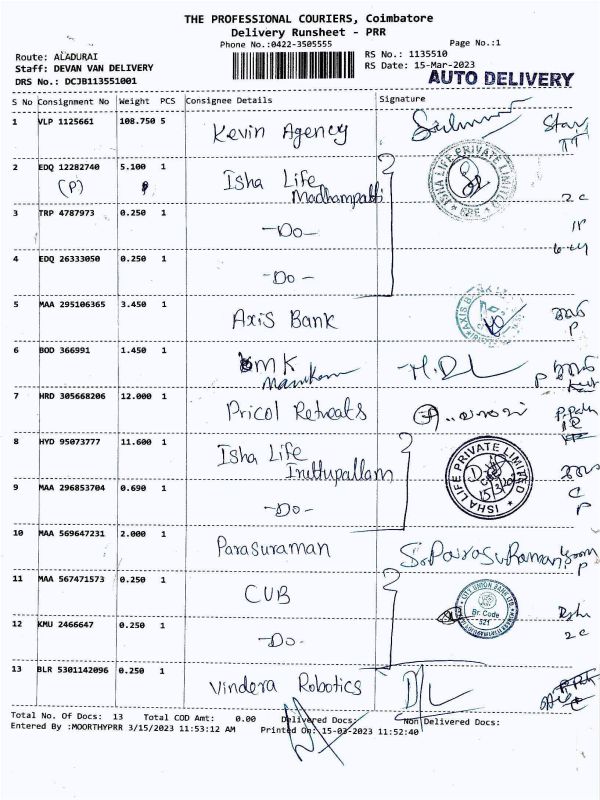 THE PROFESSIONAL COURIERS, Coimbatore
Delivery Runsheet - PRR
Phone No.:0422-3505555 Page No.:1
Route: ALADURAI RS No.: 1135510
Staff: DEVAN VAN DELIVERY RS Date: 15-Mar-2023
DRS No.: DCJB113551001 AUTO DELIVERY
S No Consignment No Weight PCS Consignee Details Signature
1 VLP 1125661 108.750 5 Kevin Agency
2 EDQ 12282740 5.100 1 Isha Life
(P) Madhampatti
ISHA LIFE PRIVATE LIMITED
2 C
3 TRP 4787973 0.250 1 -Do-
4 EDQ 26333050 0.250 1 -Do-
5 MAA 295106365 3.450 1 Axis Bank
AXIS BANK
P
6 BOD 366991 1.450 1 MK
Manikam
P
7 HRD 305668206 12.000 1 Pricol Retreats
8 HYD 95073777 11.600 1 Isha Life
Iruttupallam
ISHA LIFE PRIVATE LIMITED
9 MAA 296853704 0.690 1 -Do-
C
P
10 MAA 569647231 2.000 1 Parasuraman S.ParasuRaman
P
11 MAA 567471573 0.250 1 CUB
CITY UNION BANK LTD.
Br. Code
521
12 KMU 2466647 0.250 1 -Do-
2 C
13 BLR 5301142096 0.250 1 Vindera Robotics
Total No. Of Docs: 13 Total COD Amt: 0.00 Delivered Docs: Non Delivered Docs:
Entered By :MOORTHYPRR 3/15/2023 11:53:12 AM Printed On: 15-03-2023 11:52:40